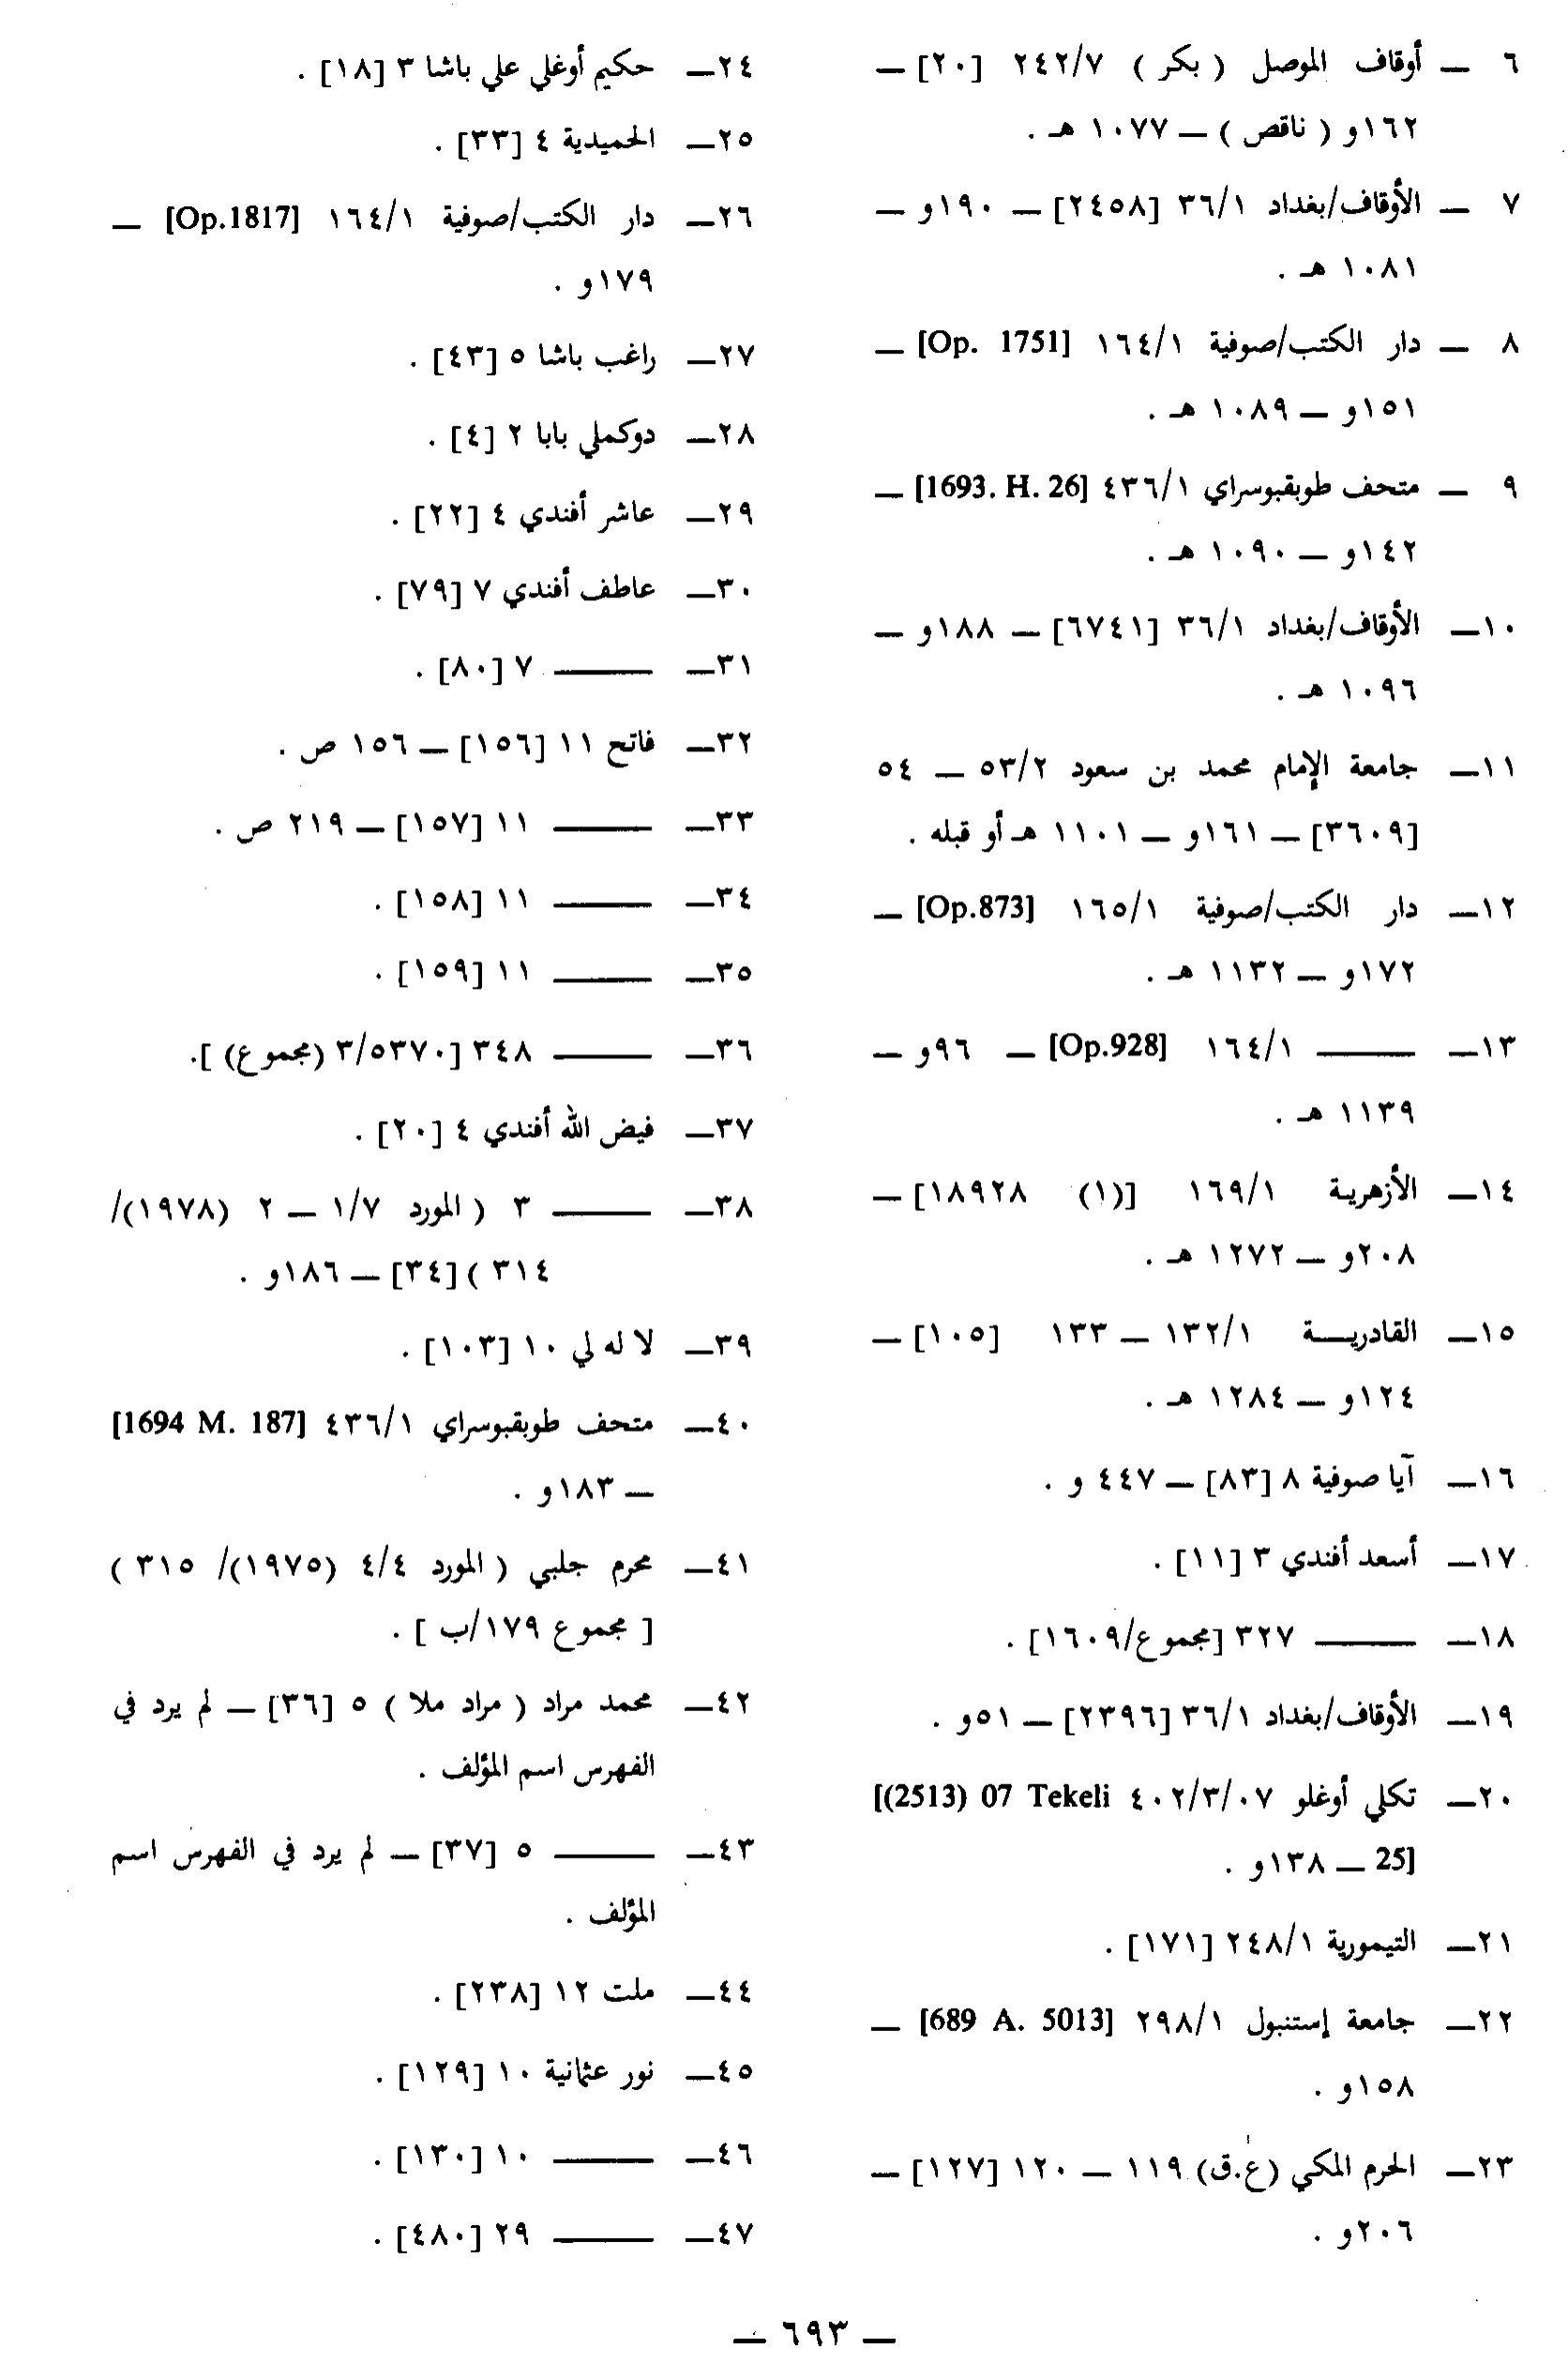 ٦ ــ أوقاف الموصل ( بكر ) ٢٤٢/٧ [٢٠] ــ
١٦٢و ( ناقص ) ــ ١٠٧٧ هـ .
٧ ــ الأوقاف/بغداد ٣٦/١ [٢٤٥٨] ــ ١٩٠و ــ
١٠٨١ هـ .
٨ ــ دار الكتب/صوفية ١٦٤/١ [Op. 1751] ــ
١٥١و ــ ١٠٨٩ هـ .
٩ ــ متحف طوبقبوسراي ٤٣٦/١ [1693. H. 26] ــ
١٤٢و ــ ١٠٩٠ هـ .
١٠ــ الأوقاف/بغداد ٣٦/١ [٦٧٤١] ــ ١٨٨و ــ
١٠٩٦ هـ .
١١ــ جامعة الإمام محمد بن سعود ٥٣/٢ ــ ٥٤
[٣٦٠٩] ــ ١٦١و ــ ١١٠١ هـ أو قبله .
١٢ــ دار الكتب/صوفية ١٦٥/١ [Op.873] ــ
١٧٢و ــ ١١٣٢ هـ .
١٣ــ ــــــــ ١٦٤/١ [Op.928] ــ ٩٦و ــ
١١٣٩ هـ .
١٤ــ الأزهرية ١٦٩/١ [(١) ١٨٩٢٨] ــ
٢٠٨و ــ ١٢٧٢ هـ .
١٥ــ القادريـــة ١٣٢/١ ــ ١٣٣ [١٠٥] ــ
١٢٤و ــ ١٢٨٤ هـ .
١٦ــ آيا صوفية ٨ [٨٣] ــ ٤٤٧ و .
١٧ــ أسعد أفندي ٣ [١١] .
١٨ــ ــــــــ ٣٢٧ [مجموع/١٦٠٩] .
١٩ــ الأوقاف/بغداد ٣٦/١ [٢٣٩٦] ــ ٥١و .
٢٠ــ تكلي أوغلو ٤٠٢/٣/٠٧ [(2513) 07 Tekeli
25] ــ ١٣٨و .
٢١ــ التيمورية ٢٤٨/١ [١٧١] .
٢٢ــ جامعة إستنبول ٢٩٨/١ [689 A. 5013] ــ
١٥٨و .
٢٣ــ الحرم المكي (ع.ق) ١١٩ ــ ١٢٠ [١٢٧] ــ
٢٠٦و .
٢٤ــ حكيم أوغلي علي باشا ٣ [١٨] .
٢٥ــ الحميدية ٤ [٣٣] .
٢٦ــ دار الكتب/صوفية ١٦٤/١ [Op.1817] ــ
١٧٩و .
٢٧ــ راغب باشا ٥ [٤٣] .
٢٨ــ دوكملي بابا ٢ [٤] .
٢٩ــ عاشر أفندي ٤ [٢٢] .
٣٠ــ عاطف أفندي ٧ [٧٩] .
٣١ــ ــــــــ ٧ [٨٠] .
٣٢ــ فاتح ١١ [١٥٦] ــ ١٥٦ ص .
٣٣ــ ــــــــ ١١ [١٥٧] ــ ٢١٩ ص .
٣٤ــ ــــــــ ١١ [١٥٨] .
٣٥ــ ــــــــ ١١ [١٥٩] .
٣٦ــ ــــــــ ٣٤٨ [٣/٥٣٧٠ (مجموع) ].
٣٧ــ فيض الله أفندي ٤ [٢٠] .
٣٨ــ ــــــــ ٣ ( المورد ١/٧ ــ ٢ (١٩٧٨)/
٣١٤ ) [٣٤] ــ ١٨٦و .
٣٩ــ لا له لي ١٠ [١٠٣] .
٤٠ــ متحف طوبقبوسراي ٤٣٦/١ [1694 M. 187]
ــ ١٨٣و .
٤١ــ محرم جلبي ( المورد ٤/٤ (١٩٧٥)/ ٣١٥ )
[ مجموع ١٧٩/ب ] .
٤٢ــ محمد مراد ( مراد ملا ) ٥ [٣٦] ــ لم يرد في
الفهرس اسم المؤلف .
٤٣ــ ــــــــ ٥ [٣٧] ــ لم يرد في الفهرس اسم
المؤلف .
٤٤ــ ملت ١٢ [٢٣٨] .
٤٥ــ نور عثمانية ١٠ [١٢٩] .
٤٦ــ ــــــــ ١٠ [١٣٠] .
٤٧ــ ــــــــ ٢٩ [٤٨٠] .
ــ ٦٩٣ ــ